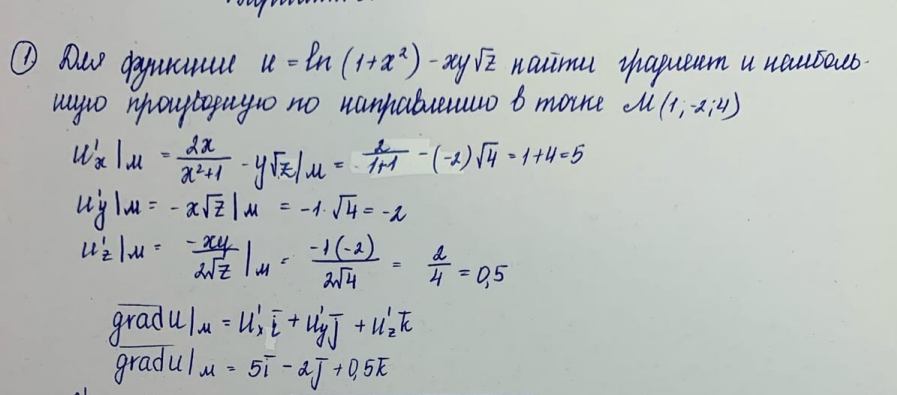 ① Для функции u = ln (1+x²) - xy√z найти градиент и наиболь-
шую производную по направлению в точке M (1; -2; 4)
u'x|м = 2x/(x²+1) - y√z|м = 2/(1+1) - (-2)√4 = 1+4=5
u'y|м = -x√z|м = -1·√4 = -2
u'z|м = -xy/(2√z)|м = -1(-2)/(2√4) = 2/4 = 0,5
grad u|м = u'x i̅ + u'y j̅ + u'z k̅
grad u|м = 5i̅ - 2j̅ + 0,5k̅